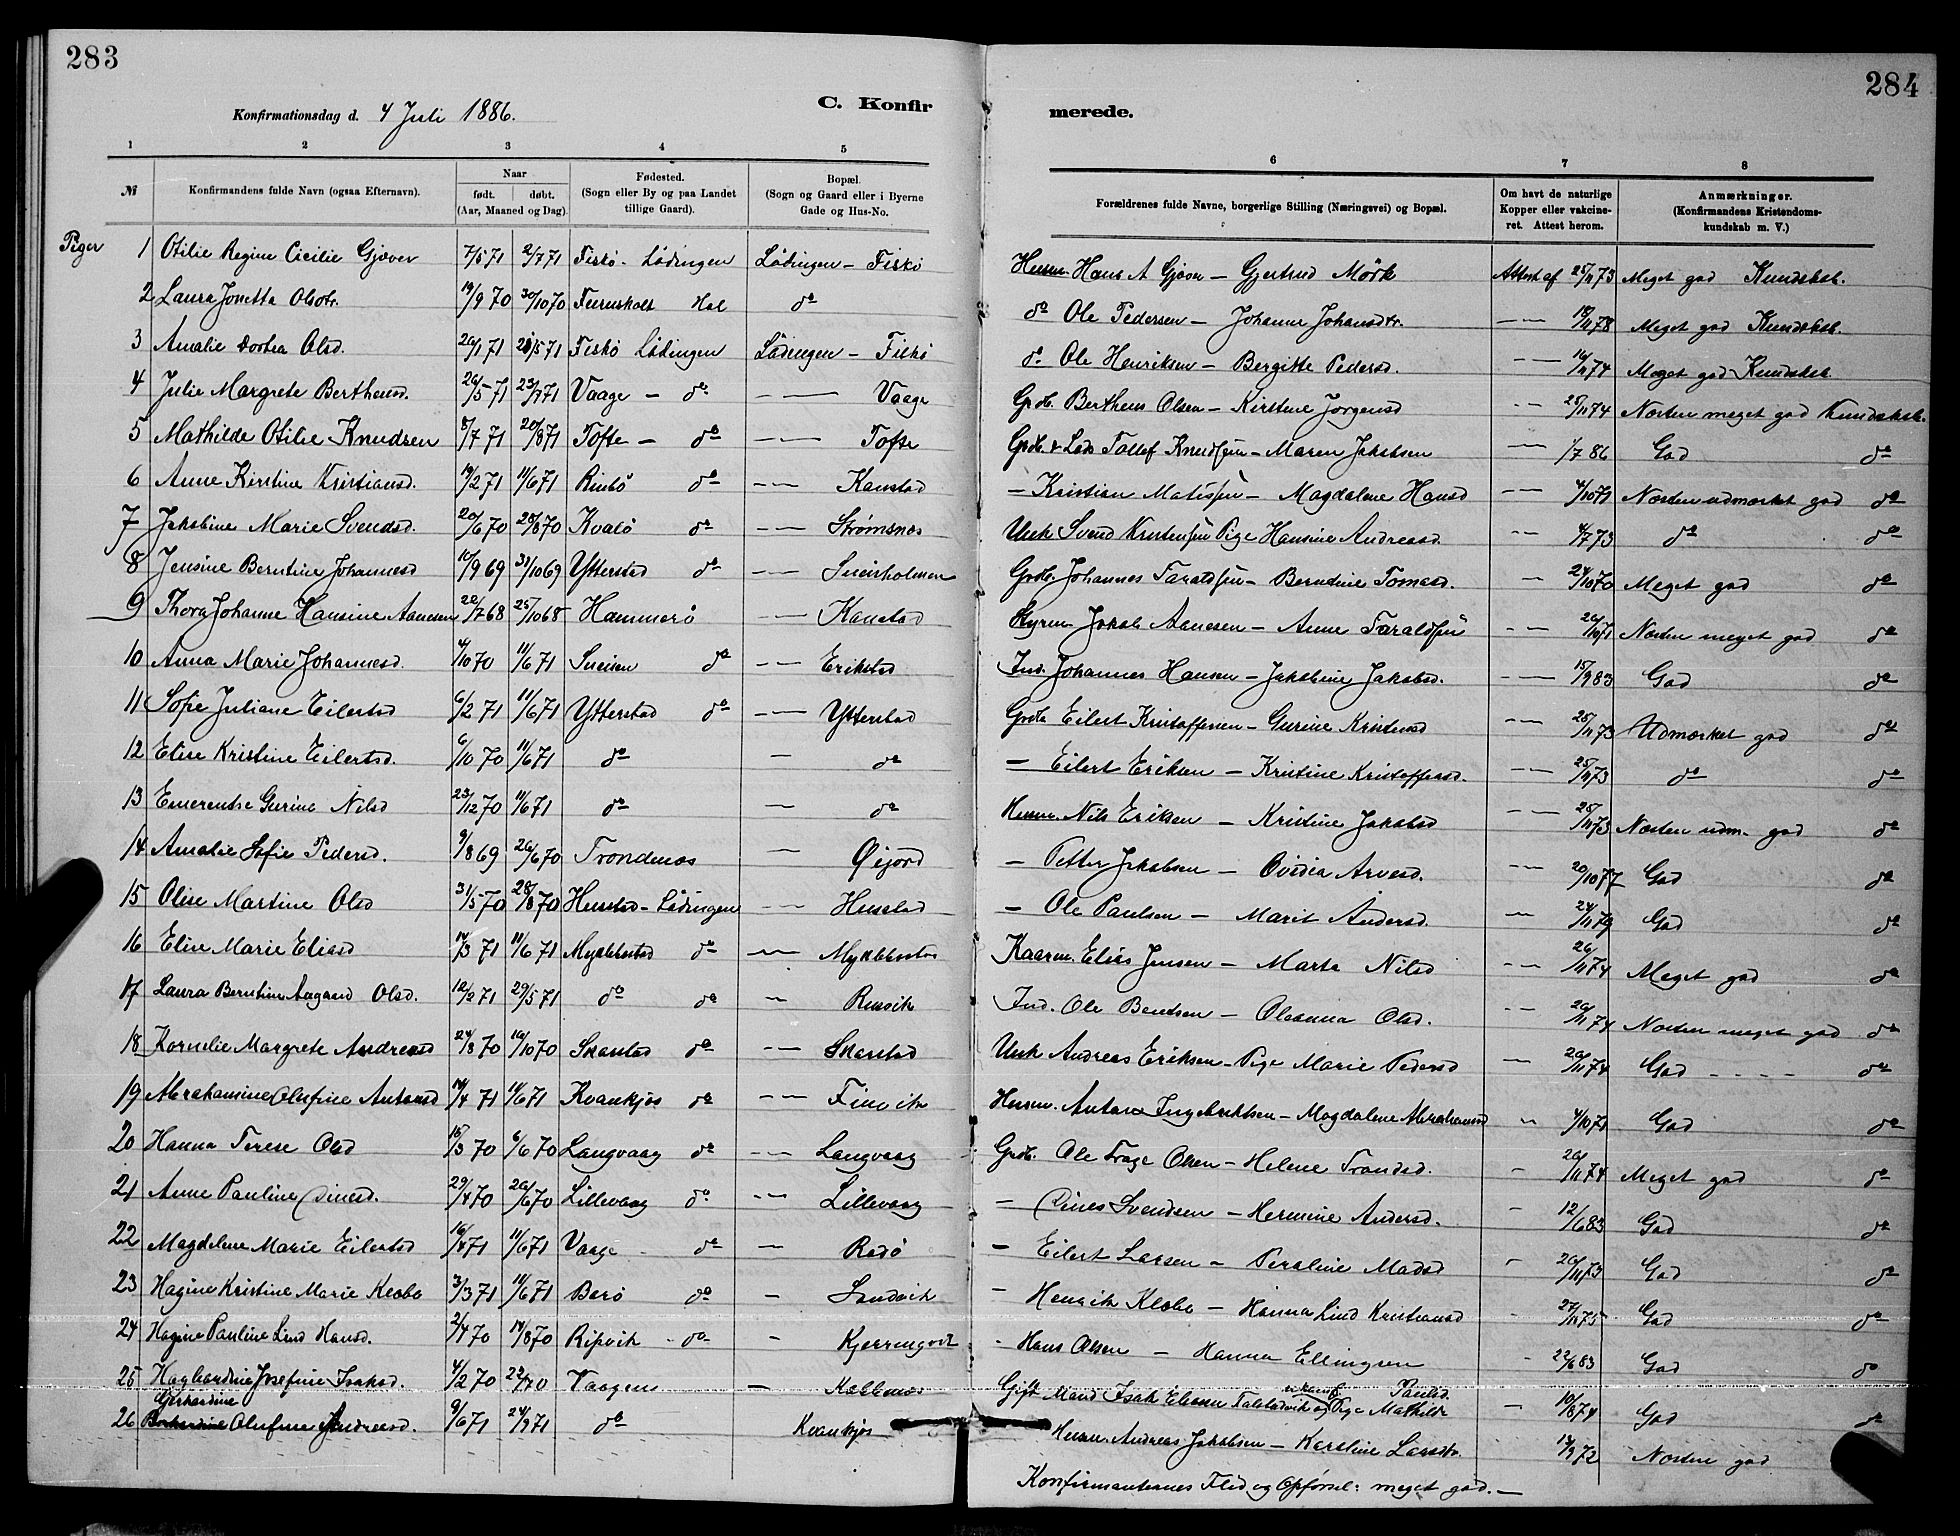 283
284
Konfirmationsdag d. 4 Juli 1886.
C. Konfir
merede.
1 2 3 4 5 6 7 8
№ Konfirmandens fulde Navn (ogsaa Efternavn). Naar født. døbt. (Aar, Maaned og Dag). Fødested. (Sogn eller By og paa Landet tillige Gaard). Bopæl. (Sogn og Gaard eller i Byerne Gade og Hus-No. Forældrenes fulde Navne, borgerlige Stilling (Næringsvei) og Bopæl. Om havt de naturlige Kopper eller vakcineret. Attest herom. Anmærkninger. (Konfirmandens Kristendomskundskab m. V.)
Piger
1 Otilie Regine Cicilie Gjæver 7/5 71 2/7 71 Fiskø - Lødingen Lødingen - Fiskø Husm. Hans A Gjæver - Gjertrud Mørk Attest af 25/11 73 Meget god Kundskab.
2 Laura Jonetta Olsdtr. 19/9 70 30/10 70 Hol do do Ole Pedersen - Johanne Johansdtr. 78 Meget god Kundskab.
3 Amalie Dortea Olsd. 20/1 71 71 Fiskø Lødingen Lødingen - Fiskø do Ole Henriksen - Bergitte Pedersd. 74 Meget god Kundskab
4 Julie Margrete Bertheusd. 20/5 71 23/7 71 Vaage - do - Vaage Grdb. Bertheus Olsen - Kirstine Jørgensd 25/11 74 Næsten meget god Kundskab.
5 Mathilde Otilie Knudsen 8/7 71 20/8 71 Tofte - do - Tofte Grdb. & Lods Tollef Knudssen - Maren Jakobsen 1/7 86 God do
6 Anne Kirstine Kristiansd. 19/2 71 11/6 71 Rinbø do - Kanstad - Kristian Matissen - Magdalene Hansd 4/10 71 Næsten udmærket god do
7 Jakobine Marie Svendsd. 20/6 70 28/8 70 Kvalø do - Strømsnes Unk Svend Kristensen Pige Hansine Andreasd. 4/7 73 do do
8 Jensine Berntine Johannesd 10/9 69 31/10 69 Ytterstad do - Sneisholmen Grdb. Johannes Taraldsen - Berntine Tomasd. 24/10 70 Meget god do
9 Thora Johanne Hansine Aanesen 20/7 68 25/10 68 Hammerø - Kanstad Styrm. Jakob Aanesen - Anne Taraldsen 71 Næsten meget god do
10 Anna Marie Johannesd. 4/10 70 11/6 71 Sneisen do - Erikstad Ind. Johannes Hansen - Jakobine Jakobsd. 15/9 83 God do
11 Sofie Juliane Eilertsd 6/2 71 11/6 71 Ytterstad do - Ytterstad Grdb Eilert Kristoffersen - Gurine Kristensd 25/11 73 Udmærket god do
12 Elise Kristine Eilertsd. 6/10 70 11/6 71 do - do - Eilert Eriksen - Kristine Kristoffersd. 25/11 73 do do
13 Emerentse Gurine Nilsd 23/12 70 11/6 71 do - do Husm. Nils Eriksen - Kristine Jakobsd 25/11 73 Næsten udm. god do
14 Amalie Sofie Pedersd. 9/8 69 26/6 70 Trondenæs - Øijord - Petter Jakobsen - Ovidia Arvesd. 20/10 77 God do
15 Oline Martine Olsd 31/5 70 28/8 70 Husstad - Lødingen - Husstad - Ole Paulsen - Marit Andersd. 24/11 79 God do
16 Elise Marie Eliasd 14/3 71 11/6 71 Myklebostad do - Myklebostad Kaarm. Elias Jensen - Marta Nilsd 26/11 74 Meget god do
17 Laura Berntine Aagaard Olsd. 12/2 71 29/5 71 do do - Rinvik Ind. Ole Bendsen - Oleanna Olsd. 20/11 74 Næsten meget god do
18 Kornelie Margrete Andreasd 24/8 70 16/10 70 Skarstad do - Skarstad Unk Andreas Eriksen - Pige Marie Pedersd 20/11 74 God - - - - do
19 Abrahamine Olufine Antonsd 14/4 71 11/6 71 Kvankjos do - Finvik Husm. Anton Ingebriktsen - Magdalene Abrahamsd 4/10 71 God do
20 Hanna Terese Olsd 15/3 70 6/6 70 Langvaag do - Langvaag Grdb. Ole Olsen - Helene Trondsd. 20/11 74 Meget god do
21 Anne Pauline Dinesd. 29/4 70 26/6 70 Lillevaag do - Lillevaag - Dines Svendsen - Hermine Andersd. 12/6 83 God do
22 Magdelene Marie Eilertsd 16/4 71 11/6 71 Vaage - do - Rødø - Eilert Larsen - Peroline Madsd 20/11 73 God do
23 Hagine Kristine Marie Klæbo 3/3 71 11/6 71 Barø do - Sandvik - Henrik Klæbo - Hanna Lind Kristiansd 27/11 75 God do
24 Hagine Pauline Lind Hansd. 2/4 70 14/8 70 Ripvik - do - Kjerringvik - Hans Olsen - Hanna Ellingsen 22/6 83 God do
25 Hagbardine Josefine Isaksd. 4/2 70 22/ 70 Vaagen - Kalleness Gift Mand Isak Eliasen og Pige Mathilde Paulsd. 10/8 74 God do
Gerhardine
26 Olufine Andreasd. 9/6 71 24/9 71 do Kvankjos Husm. Andreas Jakobsen - Karoline Larsdtr. 14/9 72 Næsten god
Konfirmanternes Flid og Opførsel: meget god. -